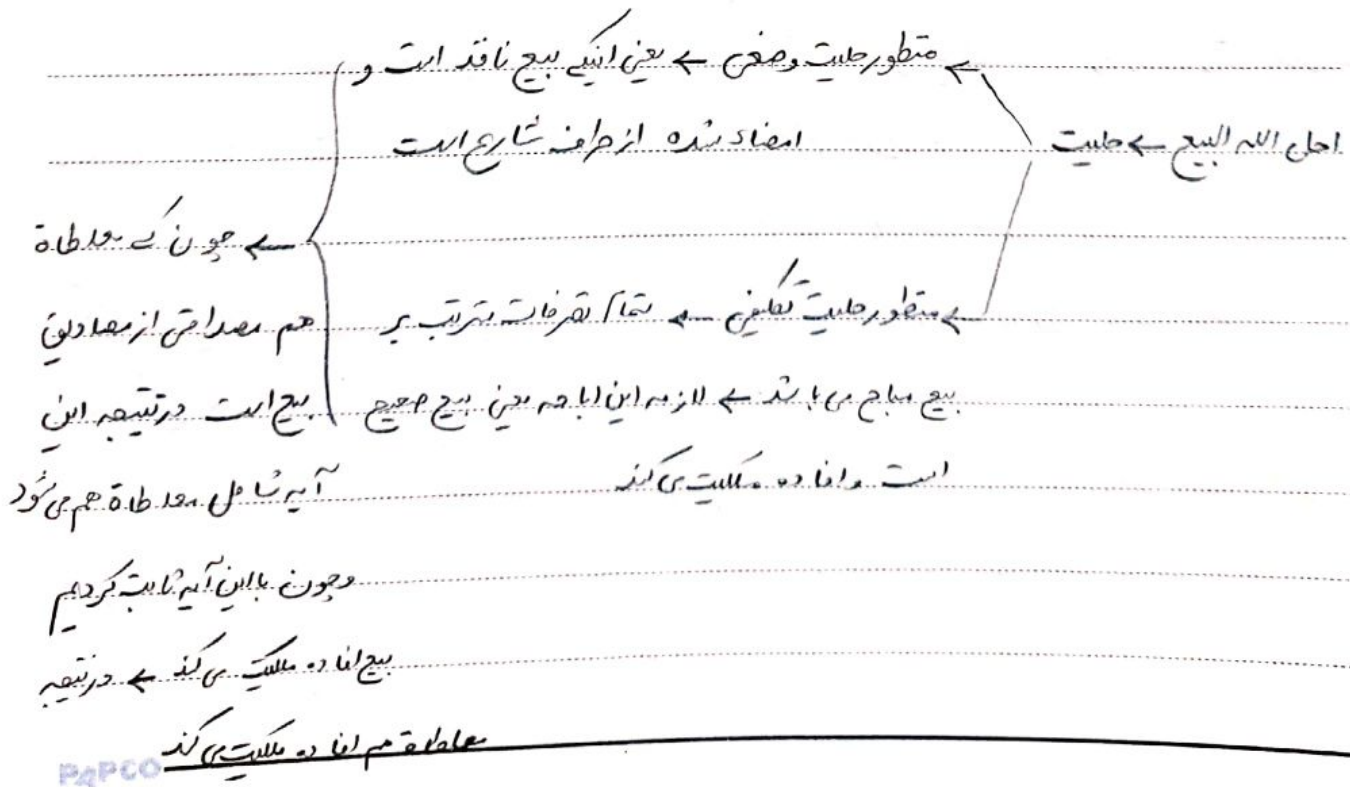 احل الله البیع ← حلیت
← منظور حلیت وضعی ← یعنی اینکه بیع نافذ است و
امضاء شده از طرف شارع است
← منظور حلیت تکلیفی ← تمام تصرفات مترتب بر
بیع مباح می باشد ← لازمه این اباحه یعنی بیع صحیح
است و افاده ملکیت می کند
← چون که معاطاة
هم مصداقی از مصادیق
بیع است در نتیجه این
آیه شامل معاطاة هم می شود
و چون با این آیه ثابت کردیم
بیع افاده ملکیت می کند ← در نتیجه
معاطاة هم افاده ملکیت می کند
PAPCO